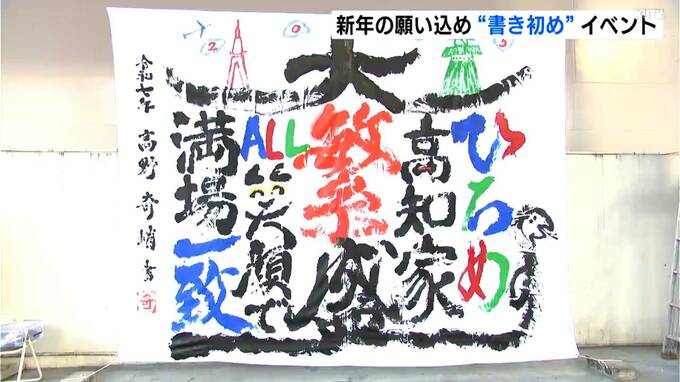 新年の願い込め“書き初め”イベント
2025
ひろめ
高知家
大繁盛
ALL笑顔で
満場一致
令和七年 高野奇峭書